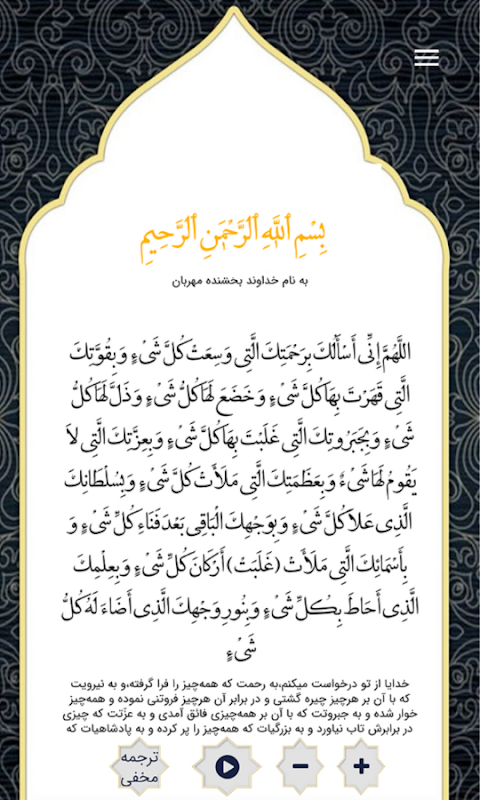 بِسْمِ ٱللَّهِ ٱلرَّحْمَٰنِ ٱلرَّحِيمِ
به نام خداوند بخشنده مهربان
اللَّهُمَّ إِنِّي أَسْأَلُكَ بِرَحْمَتِكَ الَّتِي وَسِعَتْ كُلَّ شَيْءٍ وَ بِقُوَّتِكَ
الَّتِي قَهَرْتَ بِهَا كُلَّ شَيْءٍ وَ خَضَعَ لَهَا كُلُّ شَيْءٍ وَ ذَلَّ لَهَا كُلُّ
شَيْءٍ وَ بِجَبَرُوتِكَ الَّتِي غَلَبْتَ بِهَا كُلَّ شَيْءٍ وَ بِعِزَّتِكَ الَّتِي لاَ
يَقُومُ لَهَا شَيْءٌ وَ بِعَظَمَتِكَ الَّتِي مَلَأَتْ كُلَّ شَيْءٍ وَ بِسُلْطَانِكَ
الَّذِي عَلاَ كُلَّ شَيْءٍ وَ بِوَجْهِكَ الْبَاقِي بَعْدَ فَنَاءِ كُلِّ شَيْءٍ وَ
بِأَسْمَائِكَ الَّتِي مَلَأَتْ (غَلَبَتْ) أَرْكَانَ كُلِّ شَيْءٍ وَ بِعِلْمِكَ
الَّذِي أَحَاطَ بِكُلِّ شَيْءٍ وَ بِنُورِ وَجْهِكَ الَّذِي أَضَاءَ لَهُ كُلُّ
شَيْءٍ
خدایا از تو درخواست میکنم،به رحمت که همه‌چیز را فرا گرفته،و به نیرویت
که با آن بر هرچیز چیره گشتی و در برابر آن هرچیز فروتنی نموده و همه‌چیز
خوار شده و به جبروتت که با آن بر همه‌چیزی فائق آمدی و به عزّتت که چیزی
در برابرش تاب نیاورد و به بزرگیات که همه‌چیز را پر کرده و به پادشاهیات که
ترجمه
مخفی